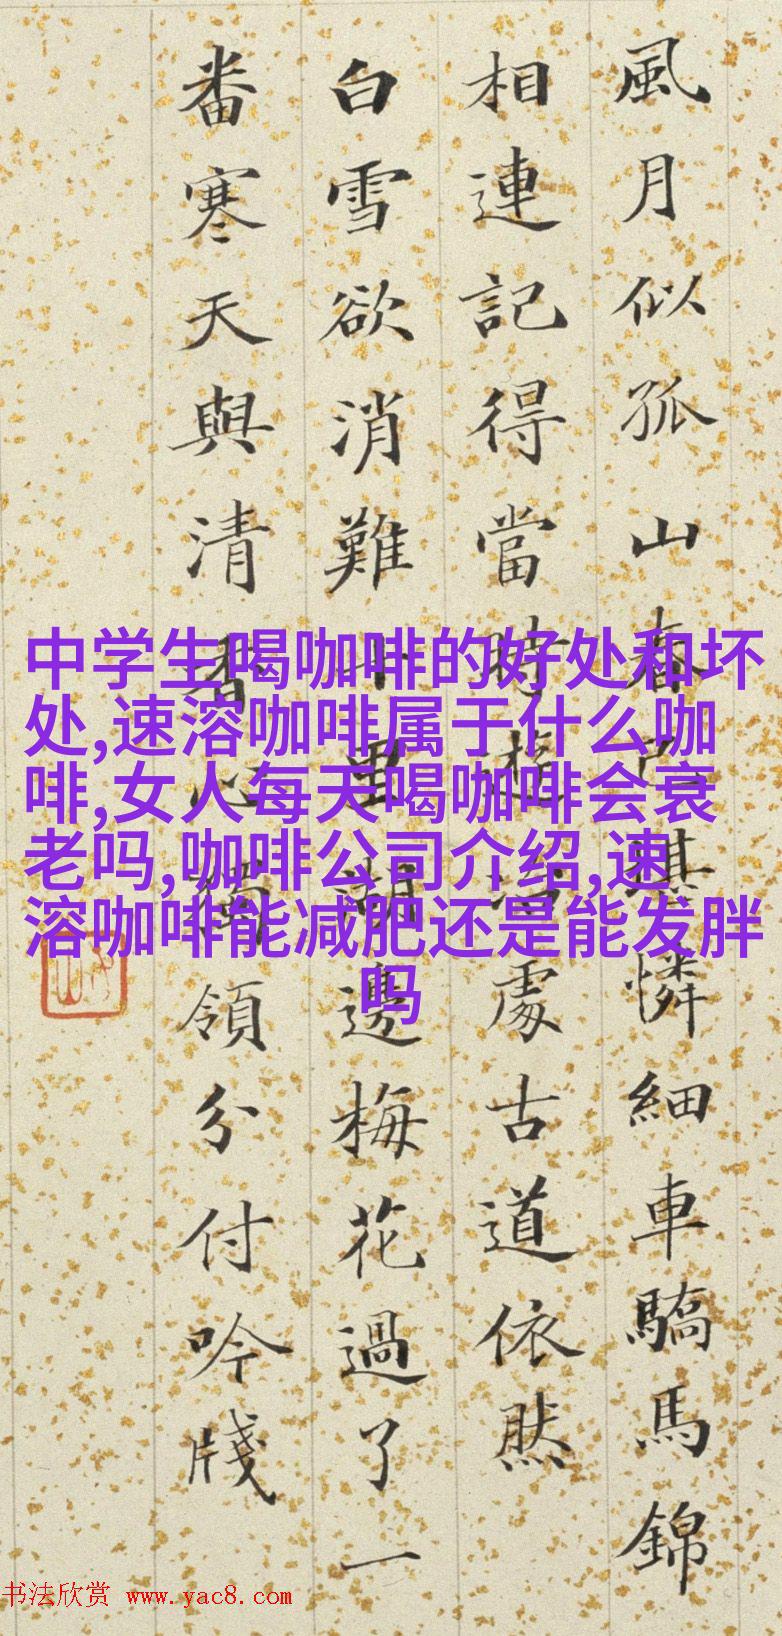 風月似孤山春已堪憐細車驕馬錦
相連記得當時遊冶處古道依然
白雪欲消難十里湖邊梅花過了一
番寒天與清香心獨領分付吟牋
中学生喝咖啡的好处和坏
处,速溶咖啡属于什么咖
啡,女人每天喝咖啡会衰
老吗,咖啡公司介绍,速
溶咖啡能减肥还是能发胖
吗
书法欣赏 www.yac8.com